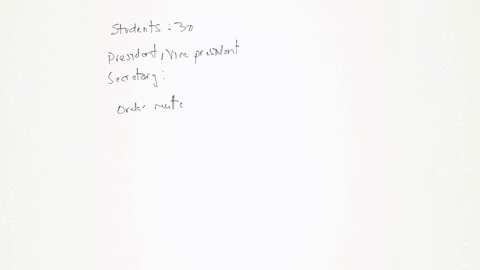 Students : 30
President, Vice president
Secretary :
Order matte